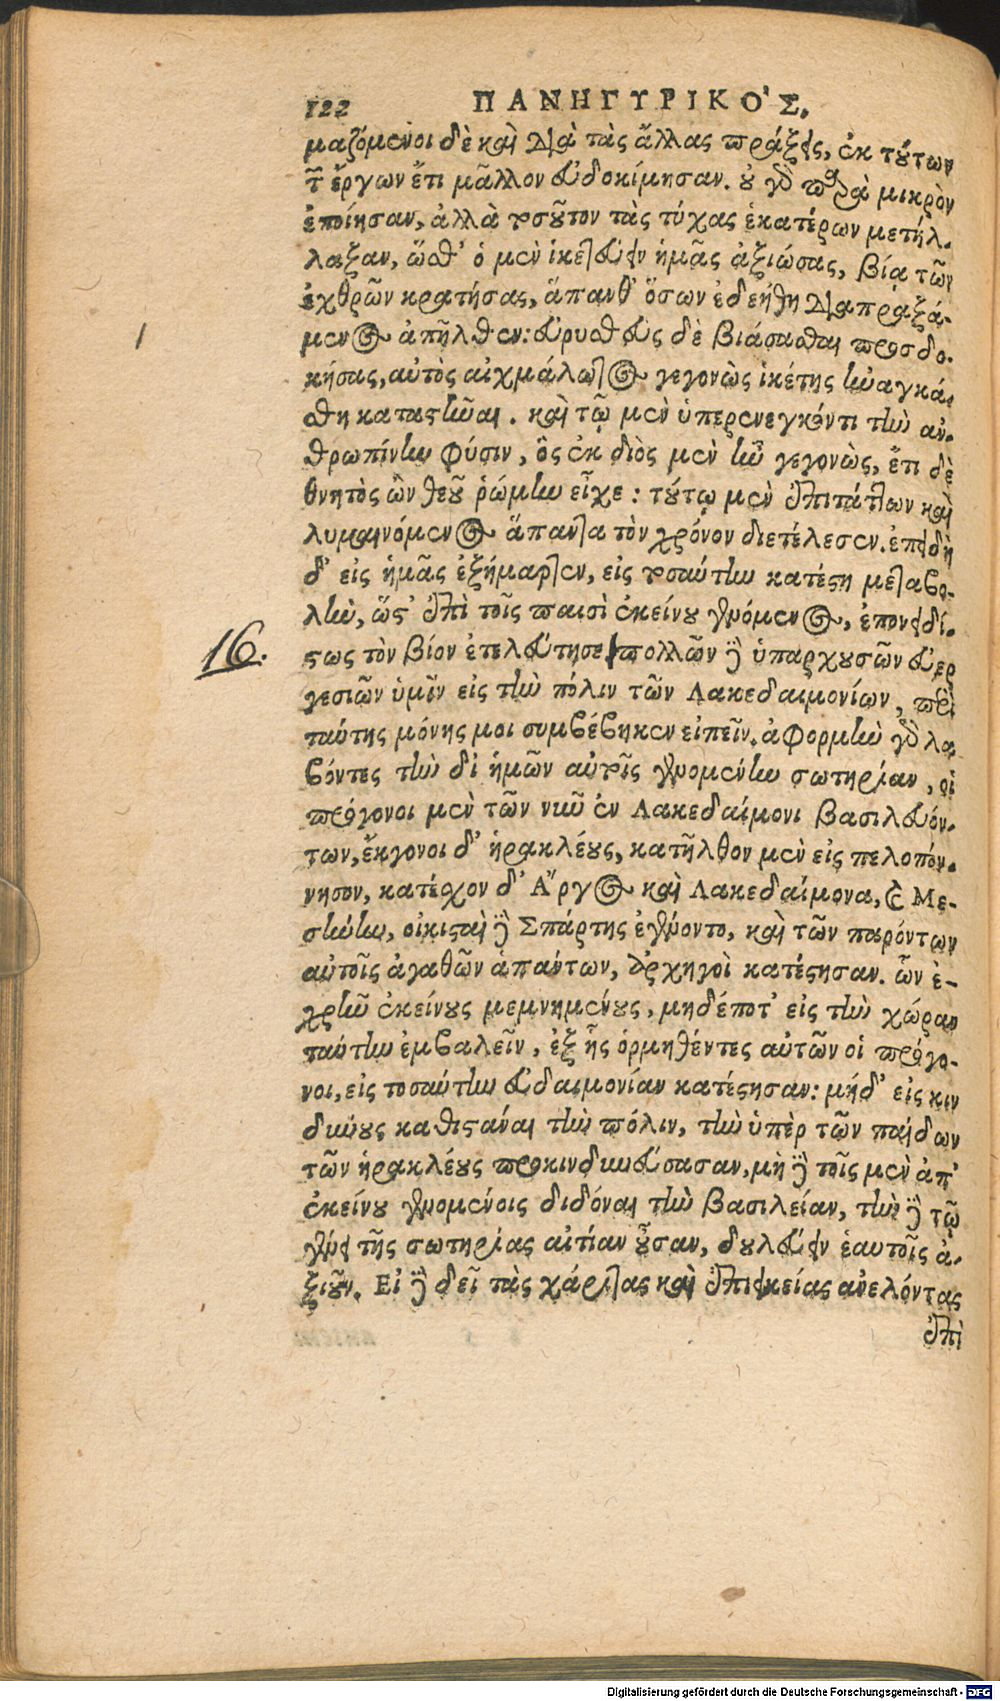 122 ΠΑΝΗΓΥΡΙΚΟ'Σ.
μαζόμενοι δὲ καὶ διὰ τὰς ἄλλας πράξεις, ἐκ τούτων
τῶν ἔργων ἔτι μᾶλλον εὐδοκίμησαν. οὐ γὰρ παρὰ μικρὸν
ἐποίησαν, ἀλλὰ τοσοῦτον τὰς τύχας ἑκατέρων μετήλ-
λαξαν, ὥσθ' ὁ μὲν ἱκετεύειν ἡμᾶς ἀξιώσας, βίᾳ τῶν
ἐχθρῶν κρατήσας, ἅπανθ' ὅσων ἐδεήθη διαπραξά-
μενος ἀπῆλθεν: εὐρυσθεὺς δὲ βιάσασθαι προσδο-
κήσας, αὐτὸς αἰχμάλωτος γεγονὼς ἱκέτης ἠναγκά-
σθη καταστῆναι. καὶ τῷ μὲν ὑπερενεγκόντι τὴν ἀν-
θρωπίνην φύσιν, ὃς ἐκ διὸς μὲν ἦν γεγονὼς, ἔτι δὲ
θνητὸς ὢν θεοῦ ῥώμην εἶχε: τούτῳ μὲν ἐπιτάττων καὶ
λυμαινόμενος ἅπαντα τὸν χρόνον διετέλεσεν. ἐπειδὴ
δ' εἰς ἡμᾶς ἐξήμαρτεν, εἰς τοσαύτην κατέστη μεταβο-
λὴν, ὥστ' ἐπὶ τοῖς παισὶ ἐκείνου γενόμενος, ἐπονειδί-
16. στως τὸν βίον ἐτελεύτησε πολλῶν δὲ ὑπαρχουσῶν εὐερ
γεσιῶν ὑμῖν εἰς τὴν πόλιν τῶν Λακεδαιμονίων, περὶ
ταύτης μόνης μοι συμβέβηκεν εἰπεῖν. ἀφορμὴν γὰρ λα
βόντες τὴν δι' ἡμῶν αὐτοῖς γενομένην σωτηρίαν, οἱ
πρόγονοι μὲν τῶν νῦν ἐν Λακεδαίμονι βασιλευόν-
των, ἔκγονοι δ' ἡρακλέους, κατῆλθον μὲν εἰς πελοπόν-
νησον, κατέσχον δ' Ἄργος καὶ Λακεδαίμονα, καὶ Με-
σήνην, οἰκισταὶ δὲ Σπάρτης ἐγένοντο, καὶ τῶν παρόντων
αὐτοῖς ἀγαθῶν ἁπάντων, ἀρχηγοὶ κατέστησαν. ὧν ἐ-
χρῆν ἐκείνους μεμνημένους, μηδέποτ' εἰς τὴν χώραν
ταύτην ἐμβαλεῖν, ἐξ ἧς ὁρμηθέντες αὐτῶν οἱ πρόγο-
νοι, εἰς τοσαύτην εὐδαιμονίαν κατέστησαν: μήδ' εἰς κιν
δύνους καθιστάναι τὴν πόλιν, τὴν ὑπὲρ τῶν παίδων
τῶν ἡρακλέους προκινδυνεύσασαν, μὴ δὲ τοῖς μὲν ἀπ'
ἐκείνου γενομένοις διδόναι τὴν βασιλείαν, τὴν δὲ τῷ
γένει τῆς σωτηρίας αἰτίαν οὖσαν, δουλεύειν ἑαυτοῖς ἀ-
ξιοῦν. Εἰ δὲ δεῖ τὰς χάριτας καὶ ἐπιεικείας ἀνελόντας
ἐπὶ
Digitalisierung gefördert durch die Deutsche Forschungsgemeinschaft - DFG